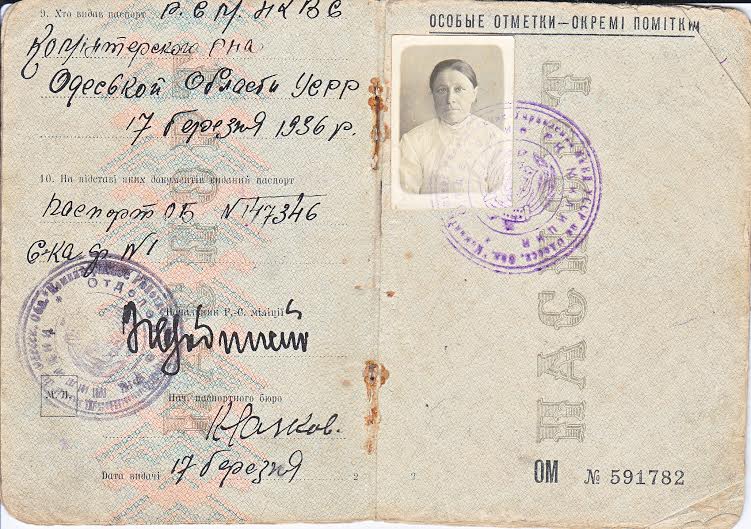 9. Хто видав паспорт Р.С.М. НКВС
Комінтернского р-на
Одеської Области УСРР
17 березня 1936 р.
10. На підставі яких документів виданий паспорт
Паспорт ОБ №147346
С-ка ф. №1
Начальник Р.-С. міліції
М. П.
Нач. паспортного бюро
Дата видачі 17 березня
2
ОСОБЫЕ ОТМЕТКИ—ОКРЕМІ ПОМІТКИ
ПАСПОРТ
3
ОМ № 591782